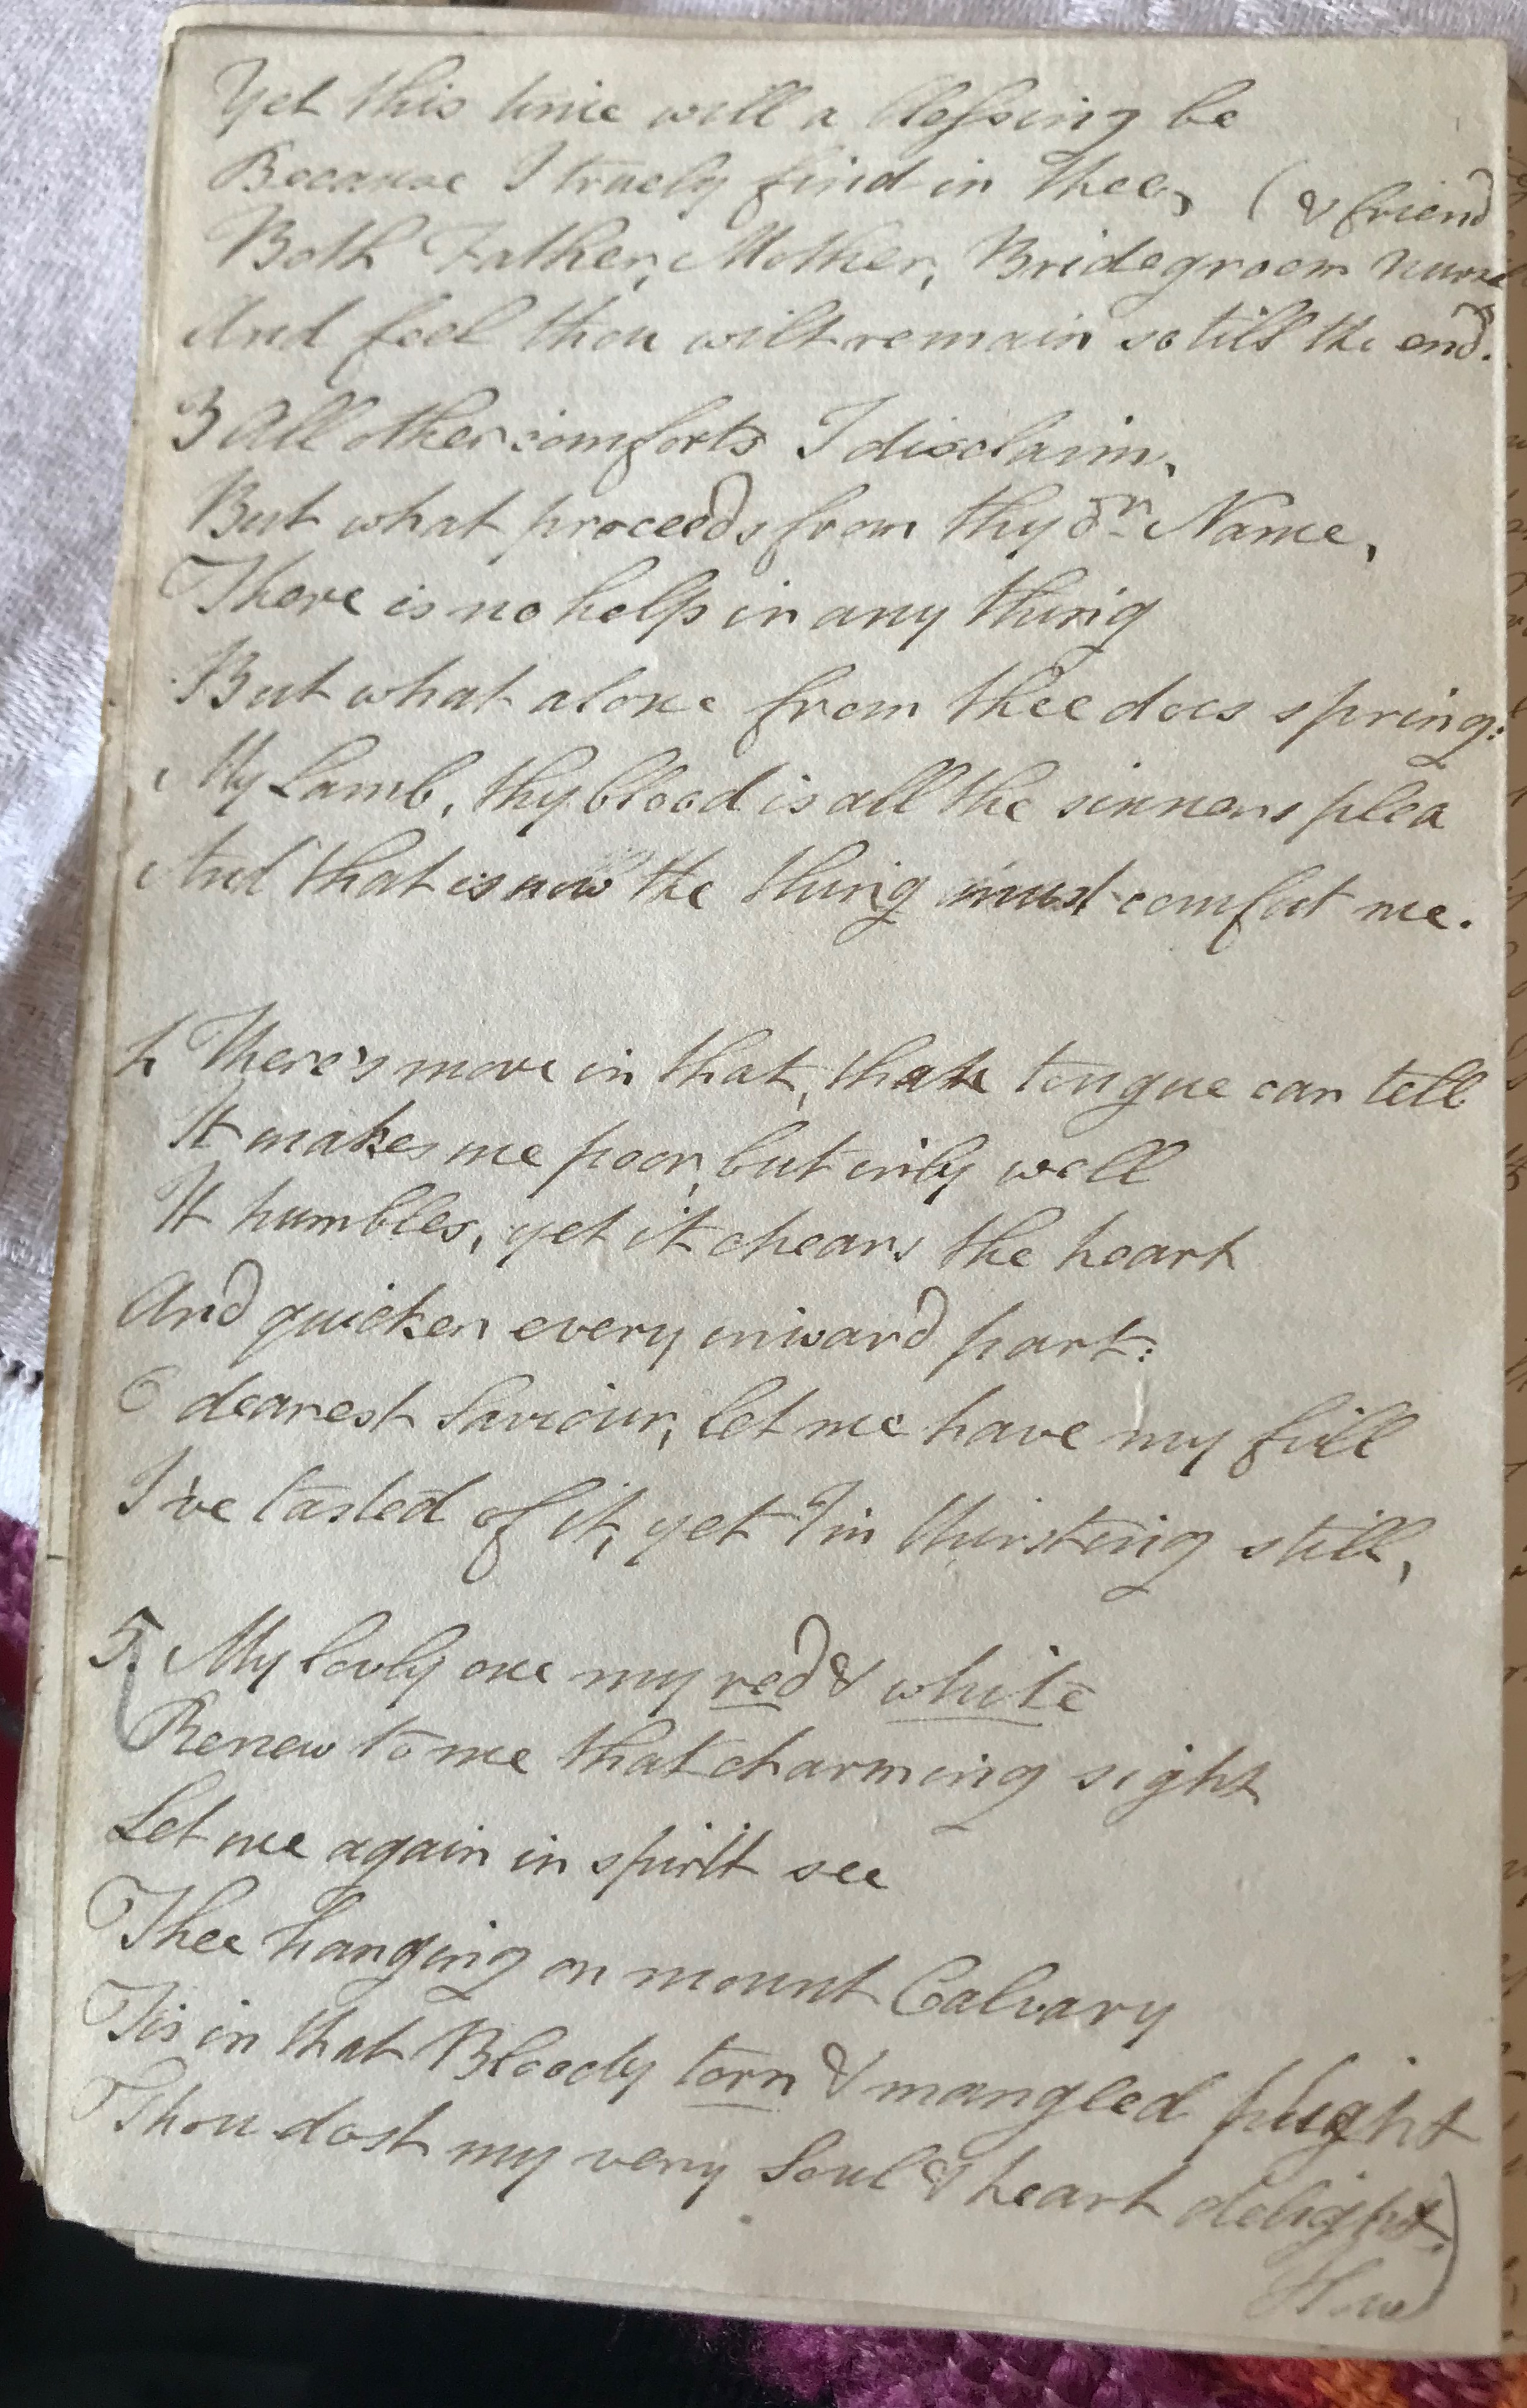 Yet this time will a blessing be
Because I truely find in thee,
(& friend
Both Father, Mother, Bridegroom nurse
And feel thou wilt remain so till the end.
3 All other comforts I disclaim,
But what proceeds from thy dr Name,
There is no help in any thing
But what alone from thee does spring:
My Lamb, thy blood is all the sinners plea
And that is now the thing must comfort me.
4 There's more in that, than tongue can tell
It makes me poor, but only well
It humbles, yet it chears the heart
And quicken every inward part:
O dearest Saviour, let me have my fill
I've tasted of it, yet I'm thirsting still,
5. My lovly one my red & white
Renew to me that charming sight
Let me again in spirit see
Thee hanging on mount Calvary
Tis in that Bloody torn & mangled plight
Thou dost my very Soul & heart delight.)